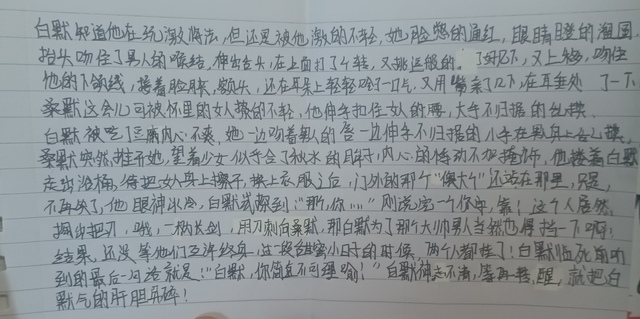 白默知道他在玩激将法,但还是被他激的不轻,她脸憋的通红,眼睛瞪的溜圆,
抬头吻住了男人的喉结,伸出舌头,在上面打了个转,又挑逗般的 了几下,又上移,吻住
他的下颌线,接着脸颊,额头,还在耳朵上轻轻咬了一口,又用嘴亲了几下,在耳垂处 了一下
桑默这会儿可被怀里的女人撩的不轻,他伸手扣住女人的腰,大手不归据的乱摸
白默被吃了豆腐内心不爽,她一边吻着男人的唇一边伸手不归据的小手在男人身上各乱摸,
桑默突然推开她,望着少女似乎含了秋水的眸子,内心的悸动不加掩饰,他搂着白默
走出浴桶,待把女人身上擦干,换上衣服之后,门外的那个"傻大个"还站在那里,只是,
不再笑了,他眼神冰冷,白默试探到:"那,你……"刚说完一个你字,靠!这个人居然
掏出把刀,哦,一柄长剑,用刀刺向桑默,那白默为了那个大帅男人当然也得挡一下啊!
结果,还没等他们互许终身,这一段甜蜜小日子的时候,两个人都挂了!白默临死前听
到的最后一句话就是:"白默,你简直不可理喻!"白默神志不清, 就把白
默气的肝胆具碎!